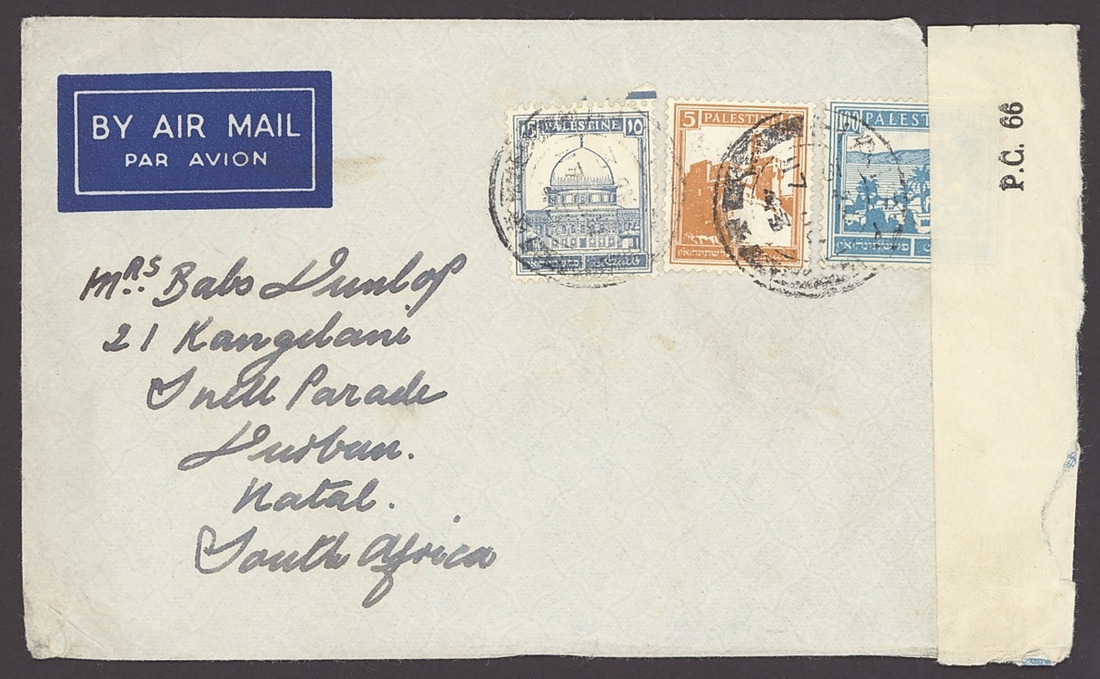 BY AIR MAIL
PAR AVION
PALESTINE 15
5 PALESTINE
100 PALEST
P.C. 66
Mrs. Babs Dunlop
21 Kangelani
Snell Parade
Durban.
Natal.
South Africa